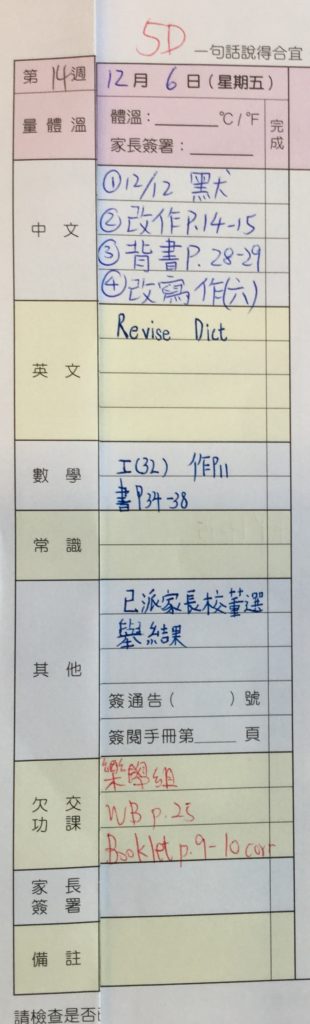 5D
一句話說得合宜
第14週 12月6日(星期五)
量體溫 體溫：______°C/°F
家長簽署：______
完成
中文
①12/12 默
②改作P.14-15
③背書P.28-29
④改寫作(六)
英文
Revise Dict
數學
工(32) 作P11
書P34-38
常識
其他
已派家長校董選
舉結果
簽通告( )號
簽閱手冊第____頁
欠交功課
樂學組
WB p.25
Booklet p.9-10 corr
家長簽署
備註
請檢查是否已